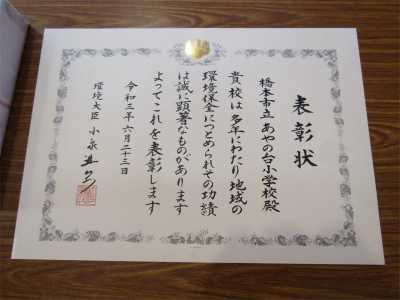 表彰状
橋本市立 あやの台小学校 殿
貴校は多年にわたり地域の
環境保全につとめられその功績
は誠に顕著なものがあります
よってこれを表彰します
令和三年六月二十三日
環境大臣 小泉進次郎